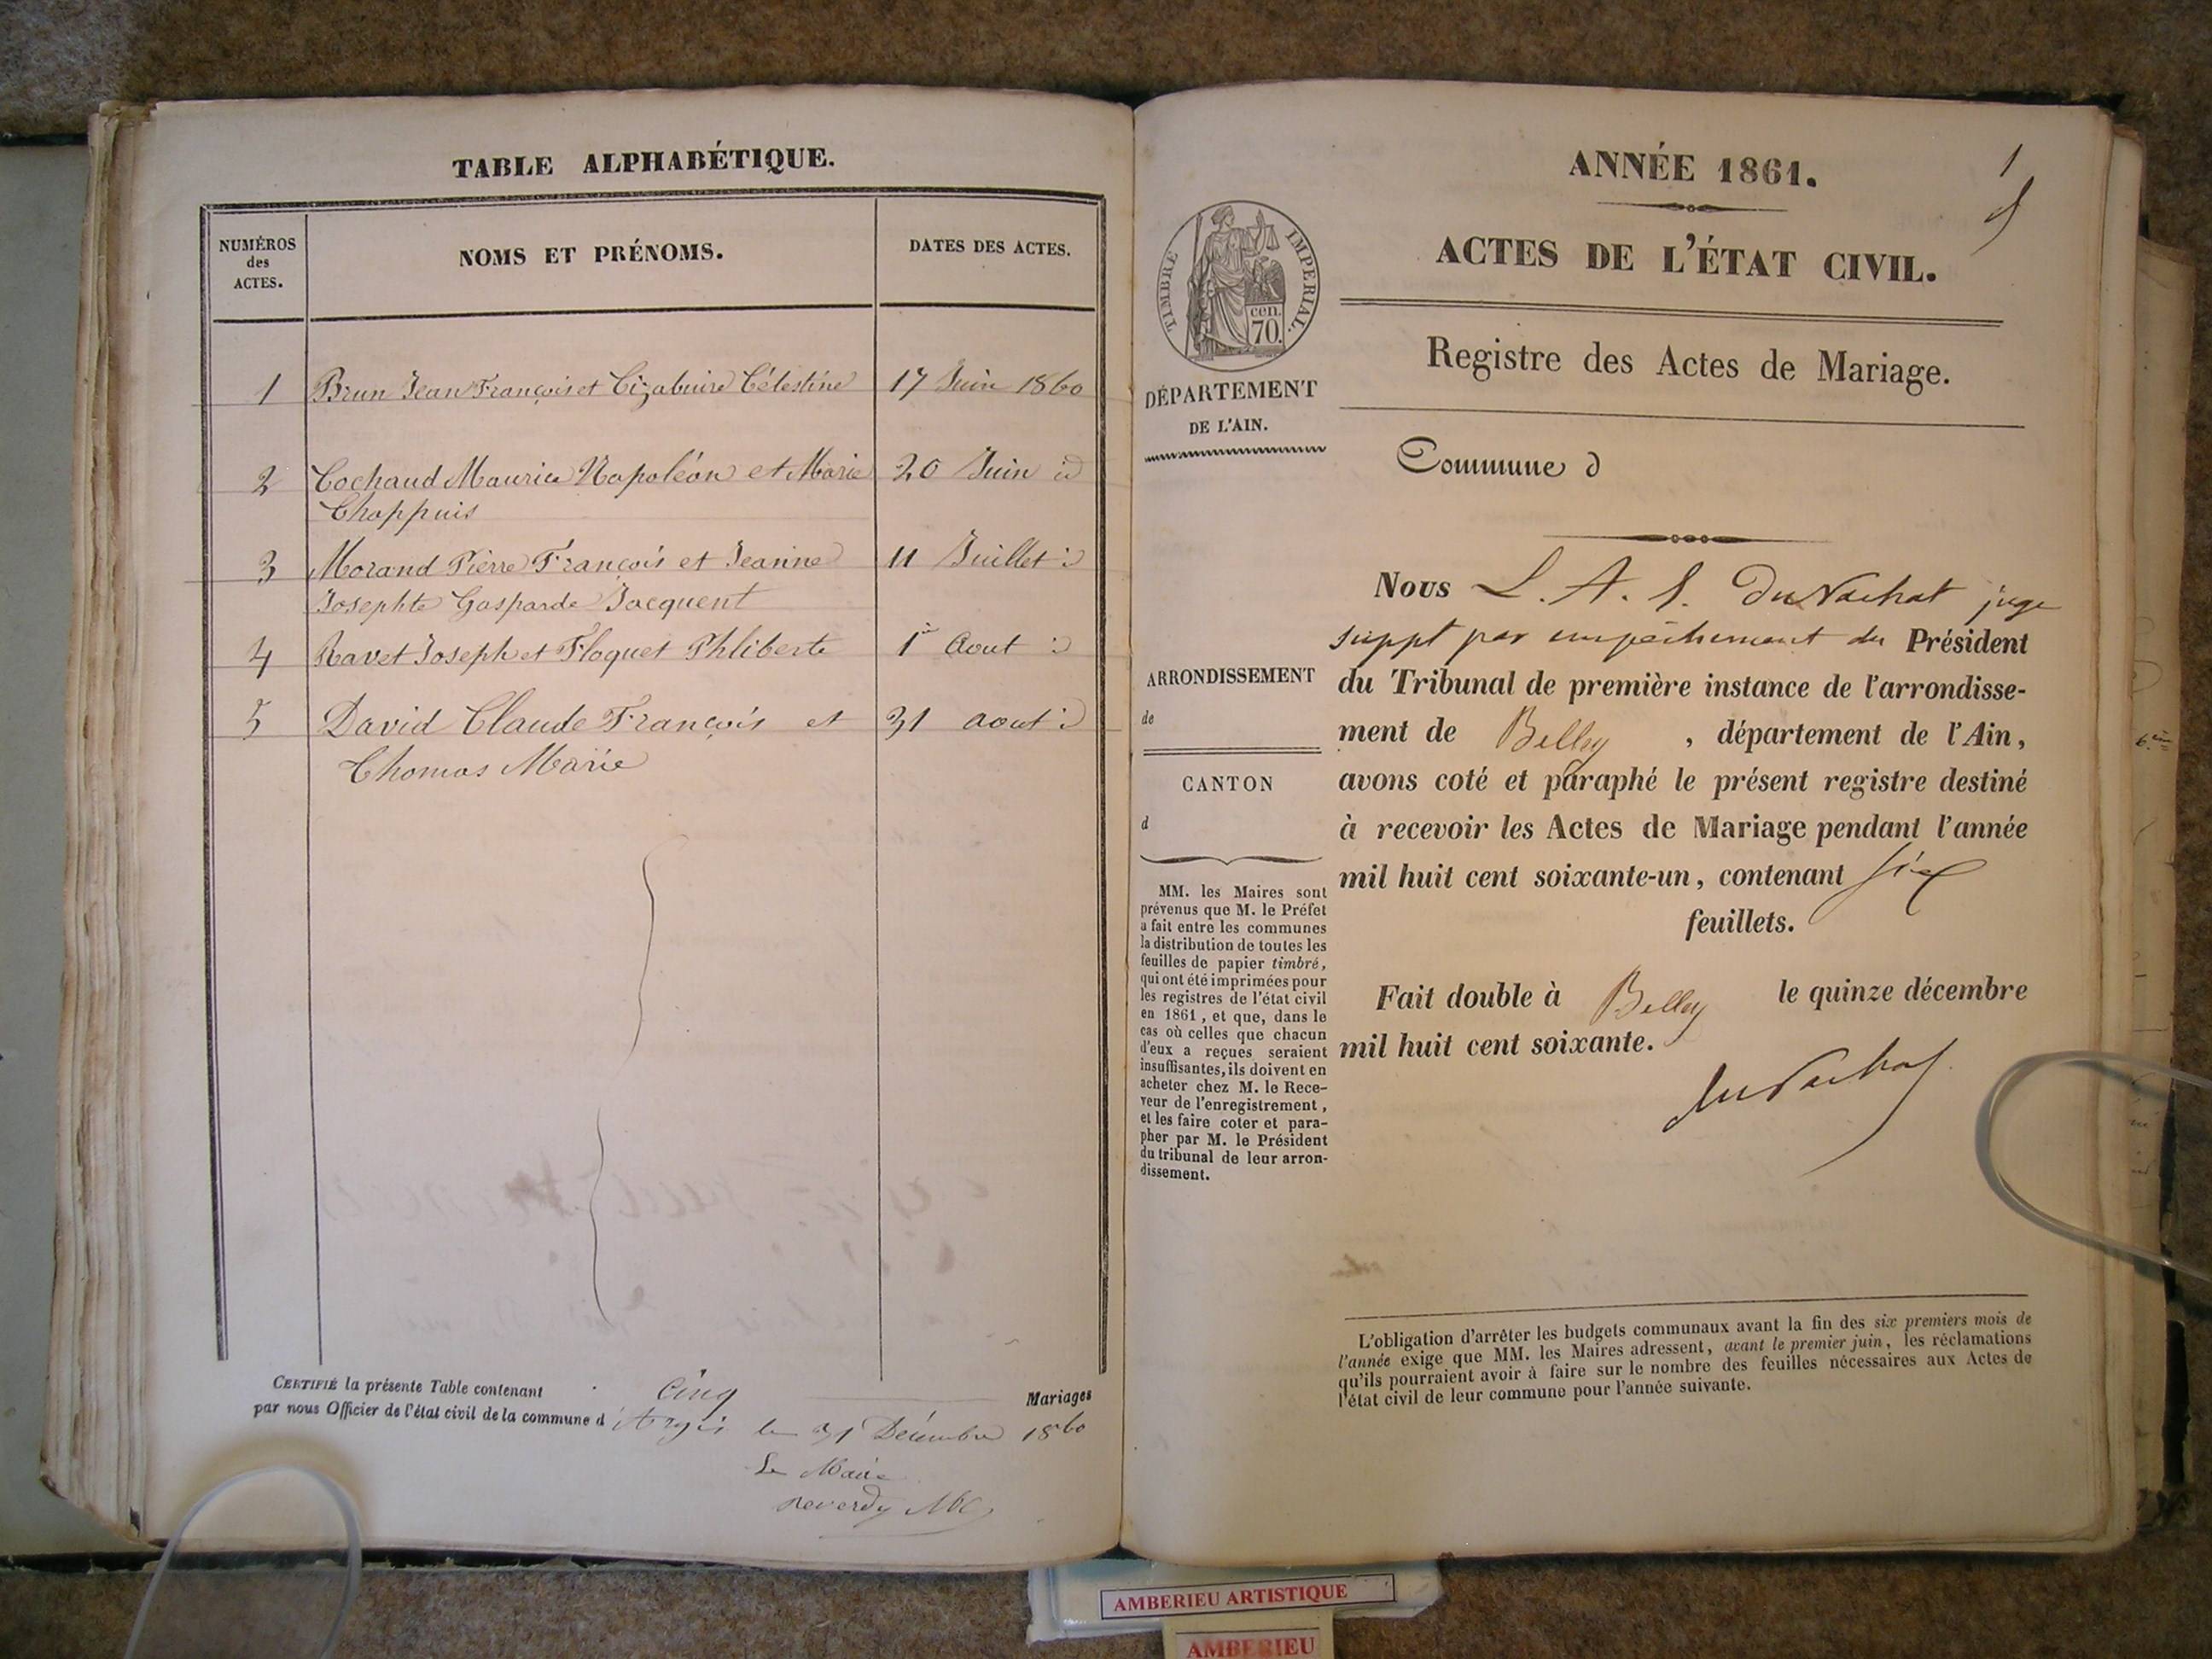 TABLE ALPHABÉTIQUE.
NUMÉROS
des
ACTES.
NOMS ET PRÉNOMS.
DATES DES ACTES.
1 Brun Jean François et Cizabuire Célestine 17 Juin 1860
2 Cochaud Maurice Napoléon et Marie 20 Juin id
Chappuis
3 Morand Pierre François et Jeanne 11 Juillet id
Josephte Gasparde Jacquent
4 Ravet Joseph et Floquet Phliberte 1er Aout id
5 David Claude François et 31 aout id
Thomas Marie
CERTIFIÉ la présente Table contenant cinq Mariages
par nous Officier de l'état civil de la commune d'Argis le 31 Décembre 1860
Le Maire
Reverdy
ANNÉE 1861.
1
ACTES DE L'ÉTAT CIVIL.
TIMBRE IMPERIAL.
cen.
70.
Registre des Actes de Mariage.
DÉPARTEMENT
DE L'AIN.
Commune d
Nous L. A. S. DuVachat juge
suppt par empêchement du Président
du Tribunal de première instance de l'arrondisse-
ment de Belley, département de l'Ain,
avons coté et paraphé le présent registre destiné
à recevoir les Actes de Mariage pendant l'année
mil huit cent soixante-un, contenant six
feuillets.
Fait double à Belley le quinze décembre
mil huit cent soixante.
duVachat
ARRONDISSEMENT
de
CANTON
d
MM. les Maires sont
prévenus que M. le Préfet
a fait entre les communes
la distribution de toutes les
feuilles de papier timbré,
qui ont été imprimées pour
les registres de l'état civil
en 1861, et que, dans le
cas où celles que chacun
d'eux a reçues seraient
insuffisantes, ils doivent en
acheter chez M. le Rece-
veur de l'enregistrement,
et les faire coter et para-
pher par M. le Président
du tribunal de leur arron-
dissement.
L'obligation d'arrêter les budgets communaux avant la fin des six premiers mois de
l'année exige que MM. les Maires adressent, avant le premier juin, les réclamations
qu'ils pourraient avoir à faire sur le nombre des feuilles nécessaires aux Actes de
l'état civil de leur commune pour l'année suivante.
AMBERIEU ARTISTIQUE
AMBERIEU